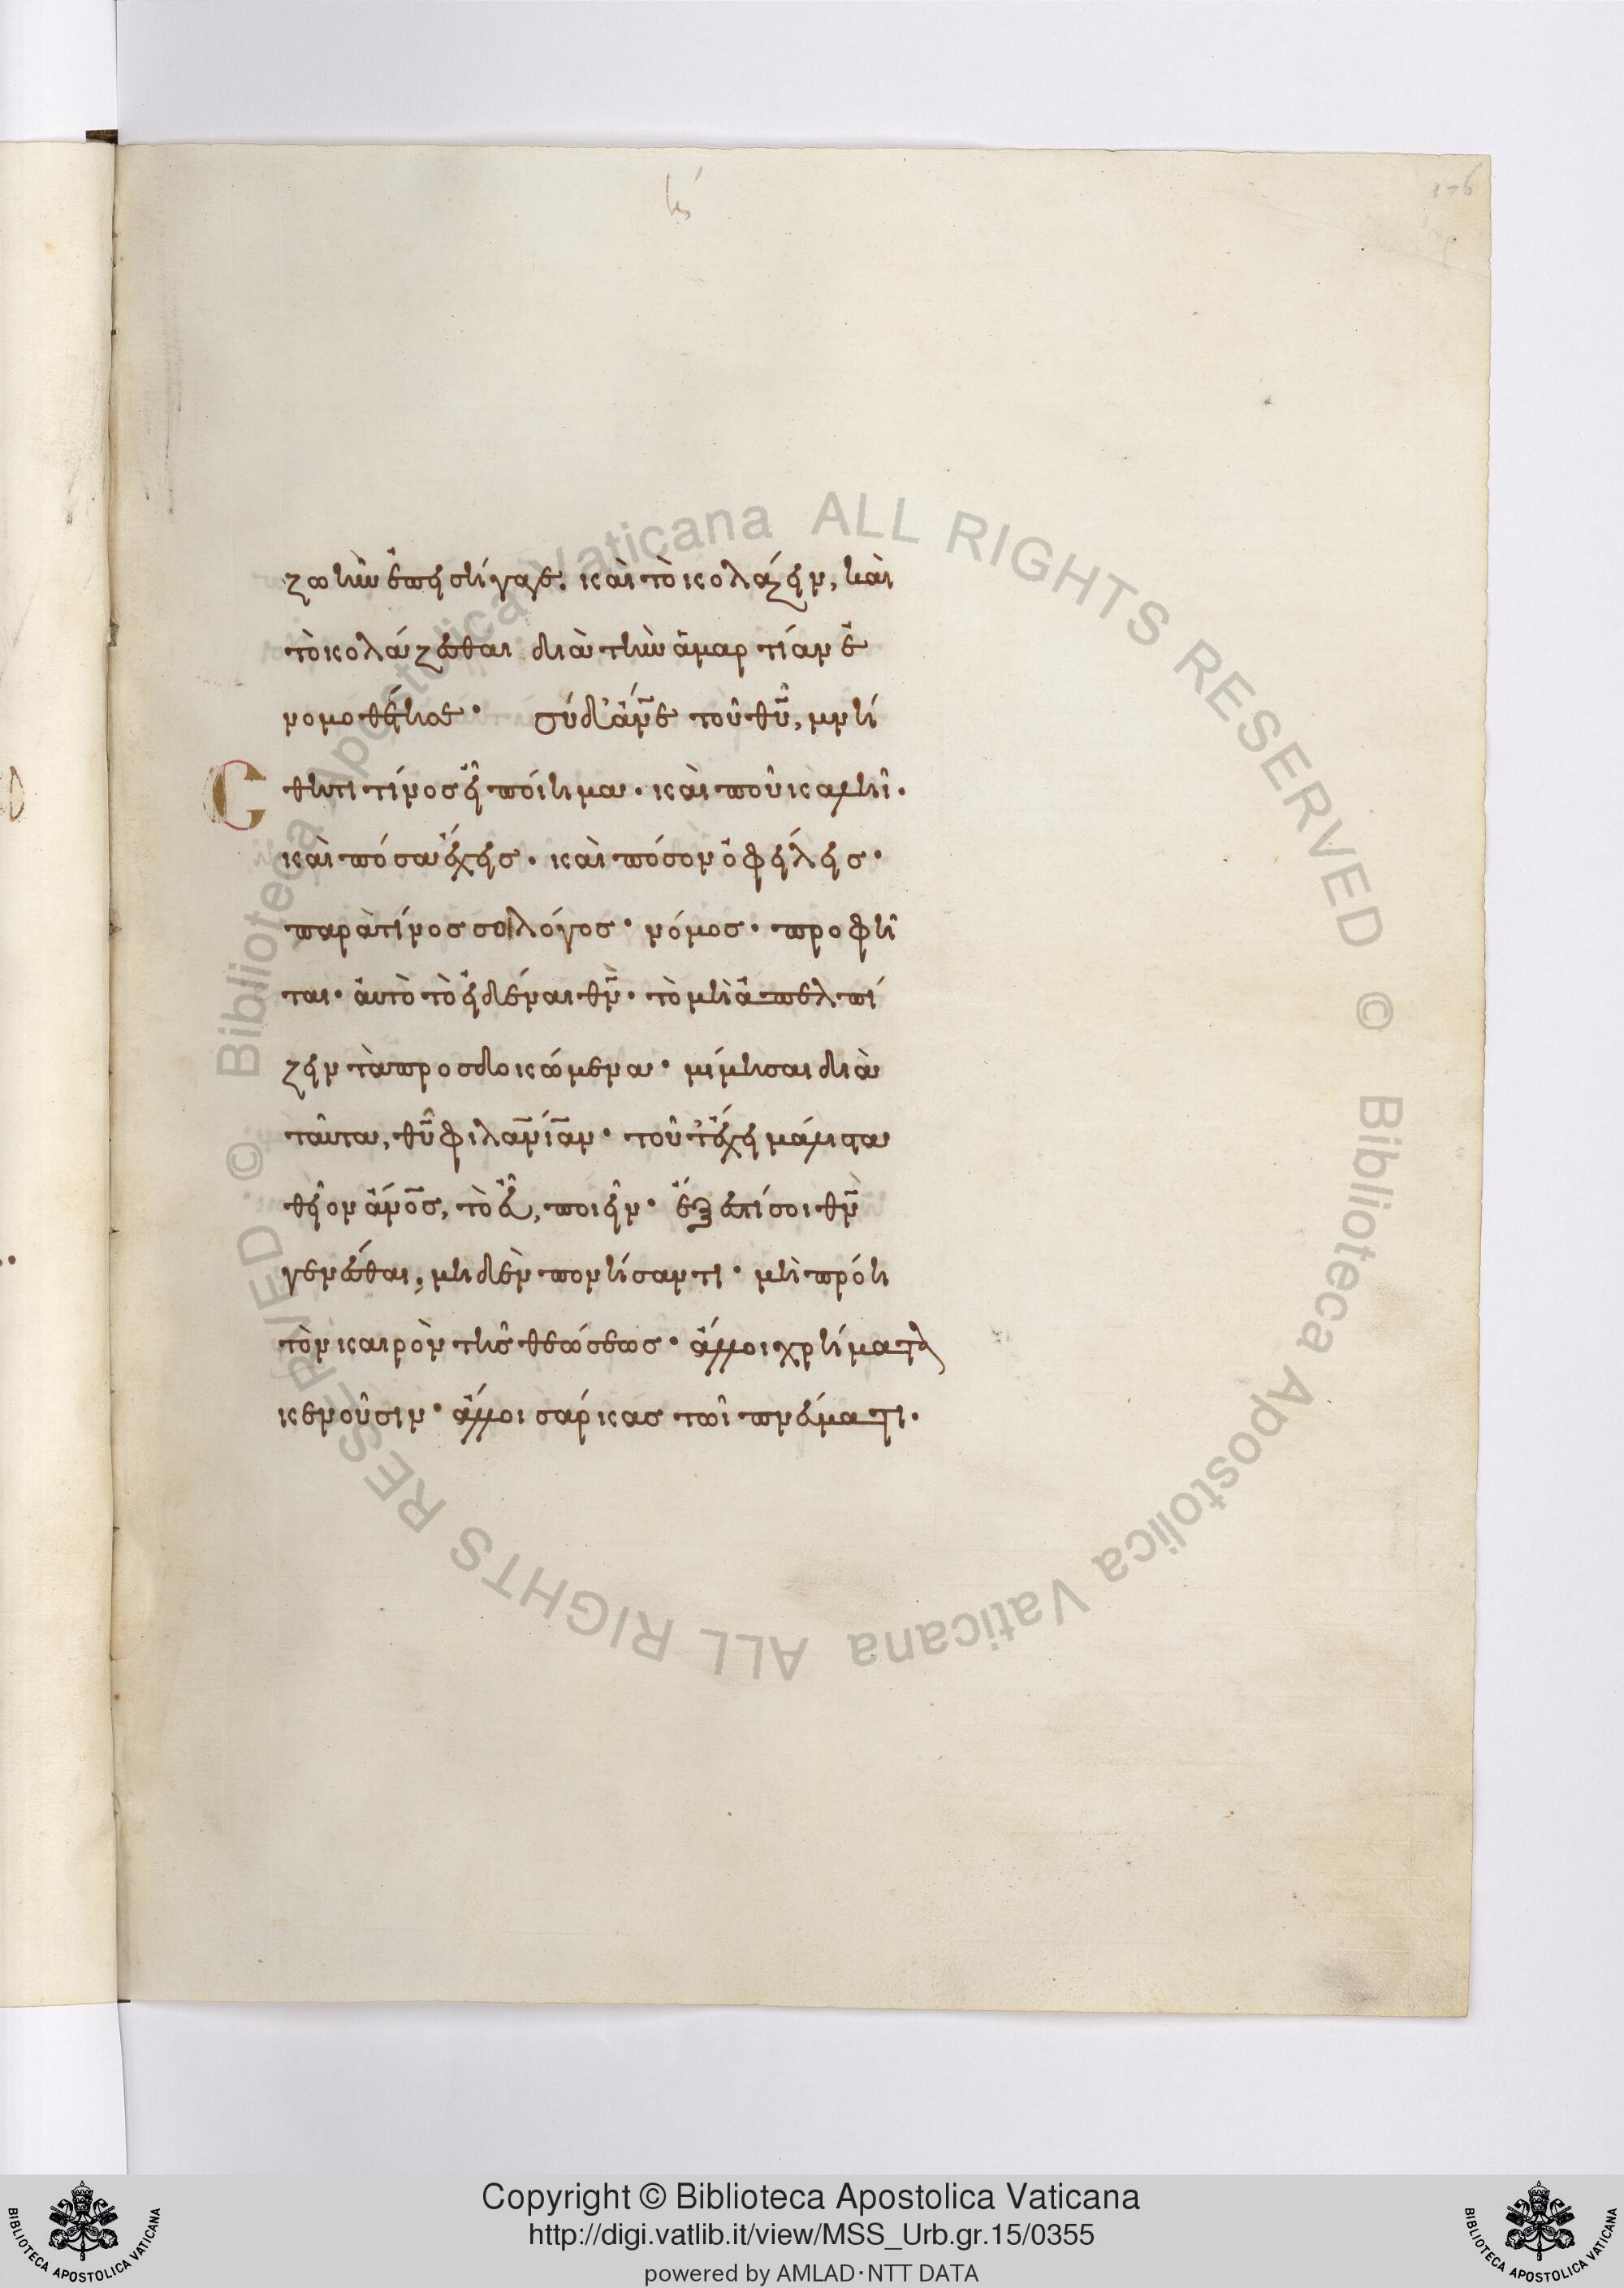 176
ζωὴν ἐπεισήγαγε. καὶ τὸ κολάζειν, καὶ
τὸ κολάζεσθαι διὰ τὴν ἁμαρτίαν ἐ
νομοθέτησε· σύ δ' ἄν̅ε τοῦ θ̅υ̅, μνή
Cθητι τίνος εἶ ποίημα· καὶ ποῦ καλῆι·
καὶ πόσα ἔχεις· καὶ πόσον ὀφείλεις·
παρὰ τίνος σοι λόγος· νόμος· προφῆ
ται· αὐτὸ τὸ εἰδέναι θ̅ν̅· τὸ μὴ ἀπελπί
ζειν τὰ προσδοκώμενα· μίμησαι διὰ
ταῦτα, θ̅υ̅ φιλαν̅ί̅αν· τοῦτ' ἔχει μάλιστα
θεῖον ἄνο̅ς, τὸ εὖ, ποιεῖν· ἔξεστί σοι θ̅ν̅
γενέσθαι, μηδὲν πονήσαντι· μὴ πρόη
τὸν καιρὸν τῆς θεώσεως· ἄλλοι χρήματα
κενοῦσιν· ἄλλοι σάρκας τῶι πνεύματι·
Copyright © Biblioteca Apostolica Vaticana
http://digi.vatlib.it/view/MSS_Urb.gr.15/0355
powered by AMLAD·NTT DATA
BIBLIOTECA APOSTOLICA VATICANA
BIBLIOTECA APOSTOLICA VATICANA
© Biblioteca Apostolica Vaticana ALL RIGHTS RESERVED © Biblioteca Apostolica Vaticana ALL RIGHTS RESERVED